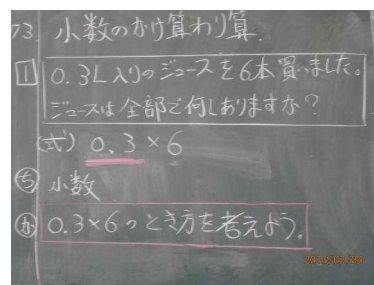 73. 小数のかけ算わり算
1 0.3L入りのジュースを6本買いました。
ジュースは全部で何Lありますか?
(式) 0.3×6
ち 小数
か 0.3×6のとき方を考えよう。